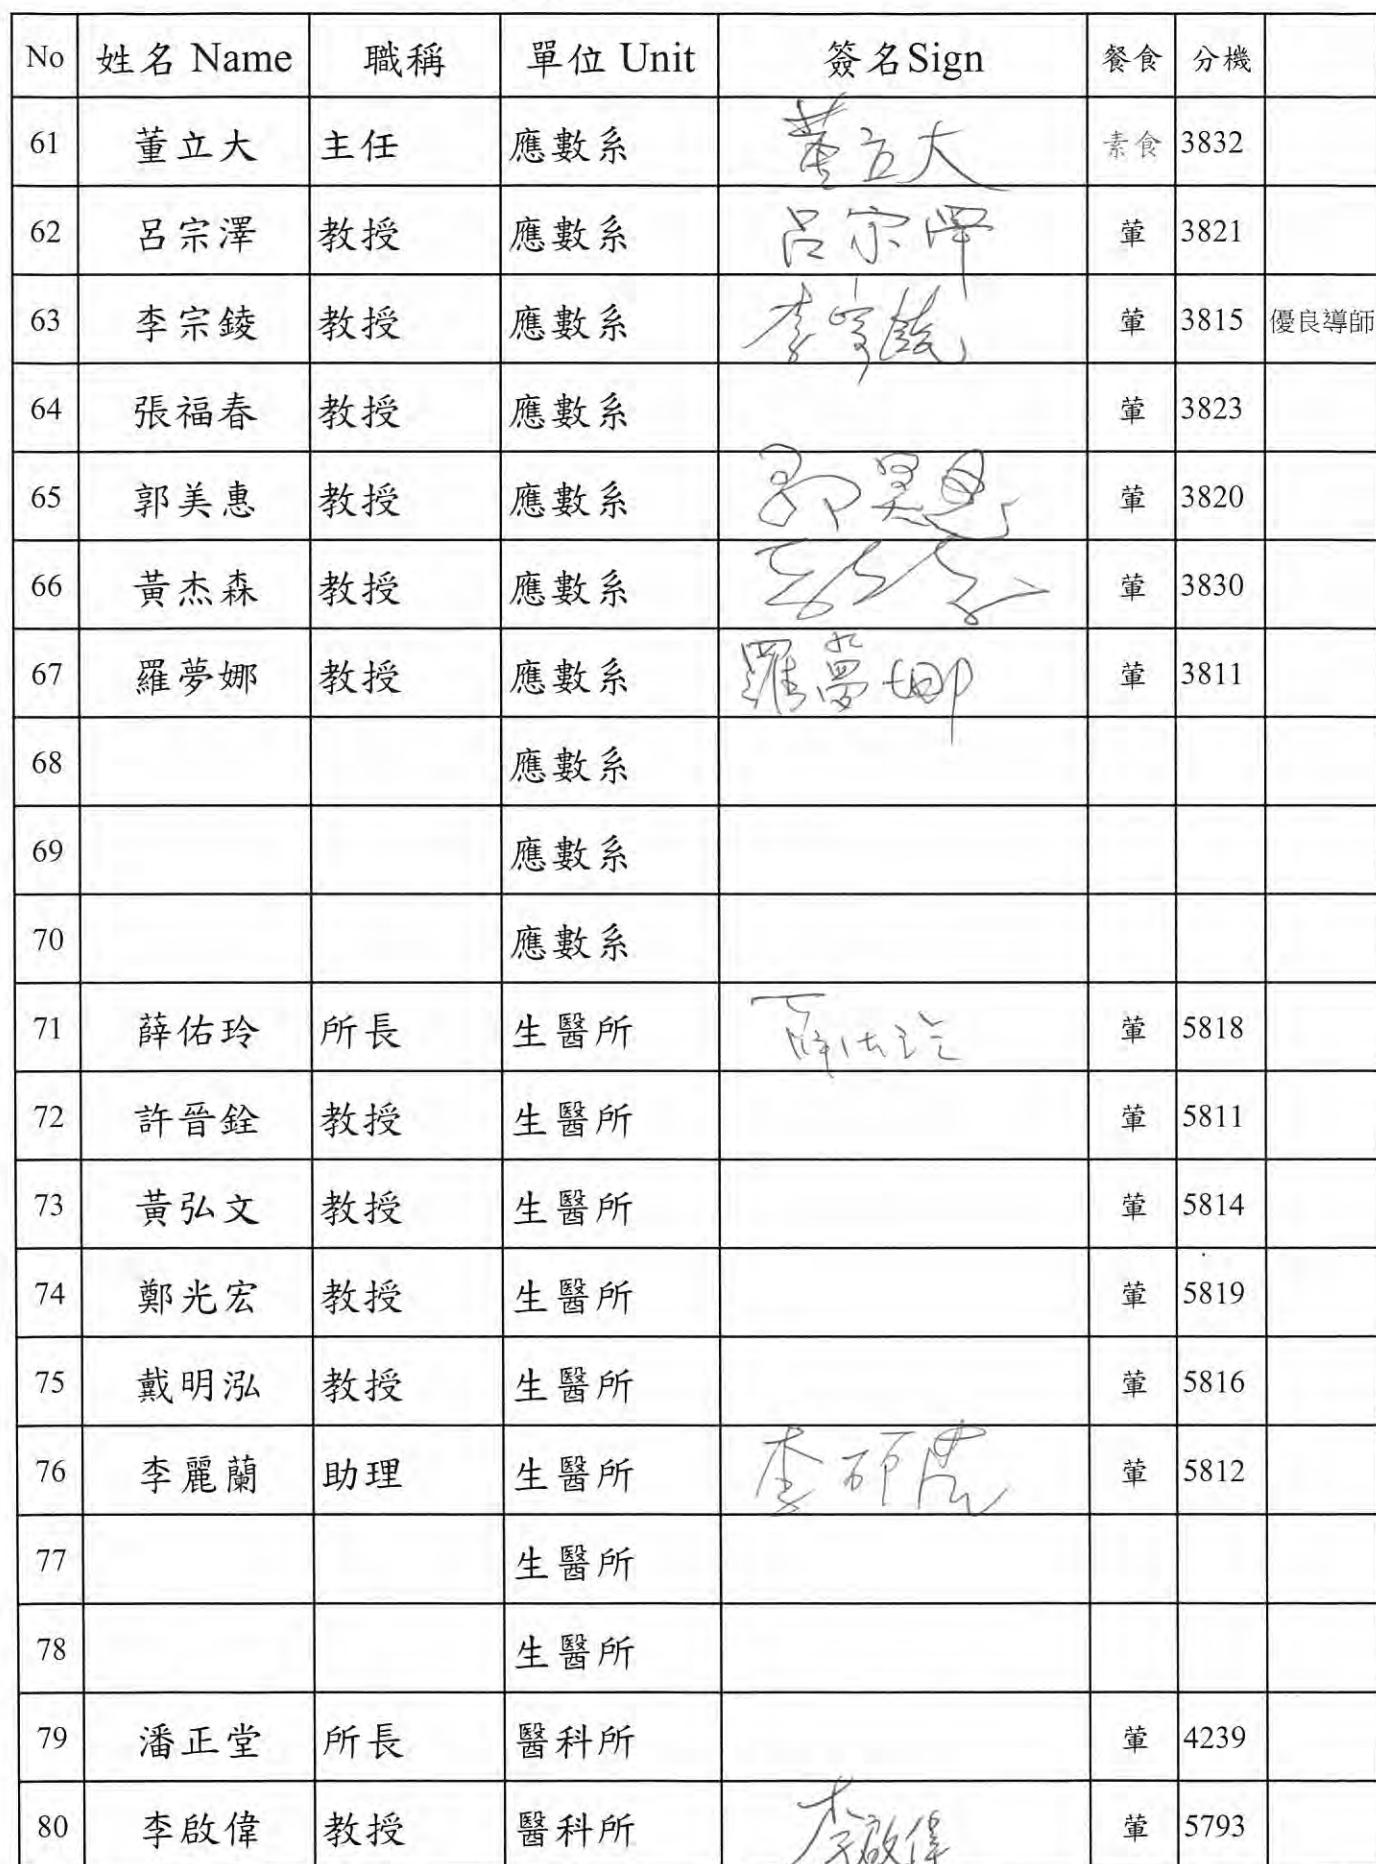 No 姓名 Name 職稱 單位 Unit 簽名Sign 餐食 分機
61 董立大 主任 應數系 董立大 素食 3832
62 呂宗澤 教授 應數系 呂宗澤 葷 3821
63 李宗錂 教授 應數系 李宗錂 葷 3815 優良導師
64 張福春 教授 應數系 葷 3823
65 郭美惠 教授 應數系 郭美惠 葷 3820
66 黃杰森 教授 應數系 葷 3830
67 羅夢娜 教授 應數系 羅夢娜 葷 3811
68 應數系
69 應數系
70 應數系
71 薛佑玲 所長 生醫所 薛佑玲 葷 5818
72 許晉銓 教授 生醫所 葷 5811
73 黃弘文 教授 生醫所 葷 5814
74 鄭光宏 教授 生醫所 葷 5819
75 戴明泓 教授 生醫所 葷 5816
76 李麗蘭 助理 生醫所 葷 5812
77 生醫所
78 生醫所
79 潘正堂 所長 醫科所 葷 4239
80 李啟偉 教授 醫科所 李啟偉 葷 5793